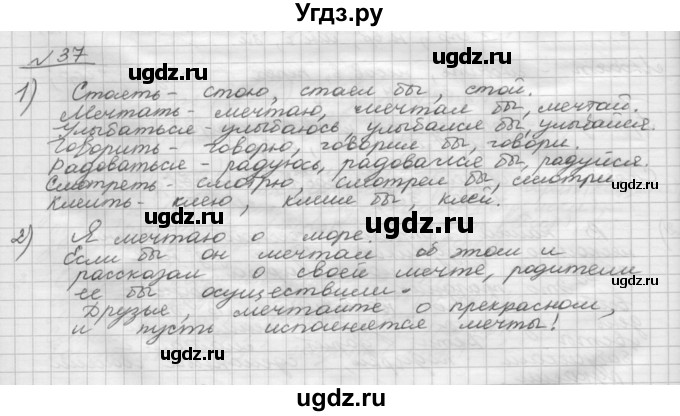 Угдз.ру
№ 37
1) Стоять - стою, стоял бы, стой.
Мечтать - мечтаю, мечтал бы, мечтай.
Улыбаться - улыбаюсь, улыбался бы, улыбайся.
Говорить - говорю, говорил бы, говори.
Радоваться - радуюсь, радовался бы, радуйся.
Смотреть - смотрю, смотрел бы, смотри.
Клеить - клею, клеил бы, клей.
2) Я мечтаю о море.
Если бы он мечтал об этом и
рассказал о своей мечте, родители
ее бы осуществили.
Друзья, мечтайте о прекрасном,
и пусть исполняются мечты!
ugdz.ru
ugdz.ru
ugdz.ru
ugdz.ru
ugdz.ru
ugdz.ru
ugdz.ru
ugdz.ru
ugdz.ru
ugdz.ru
ugdz.ru